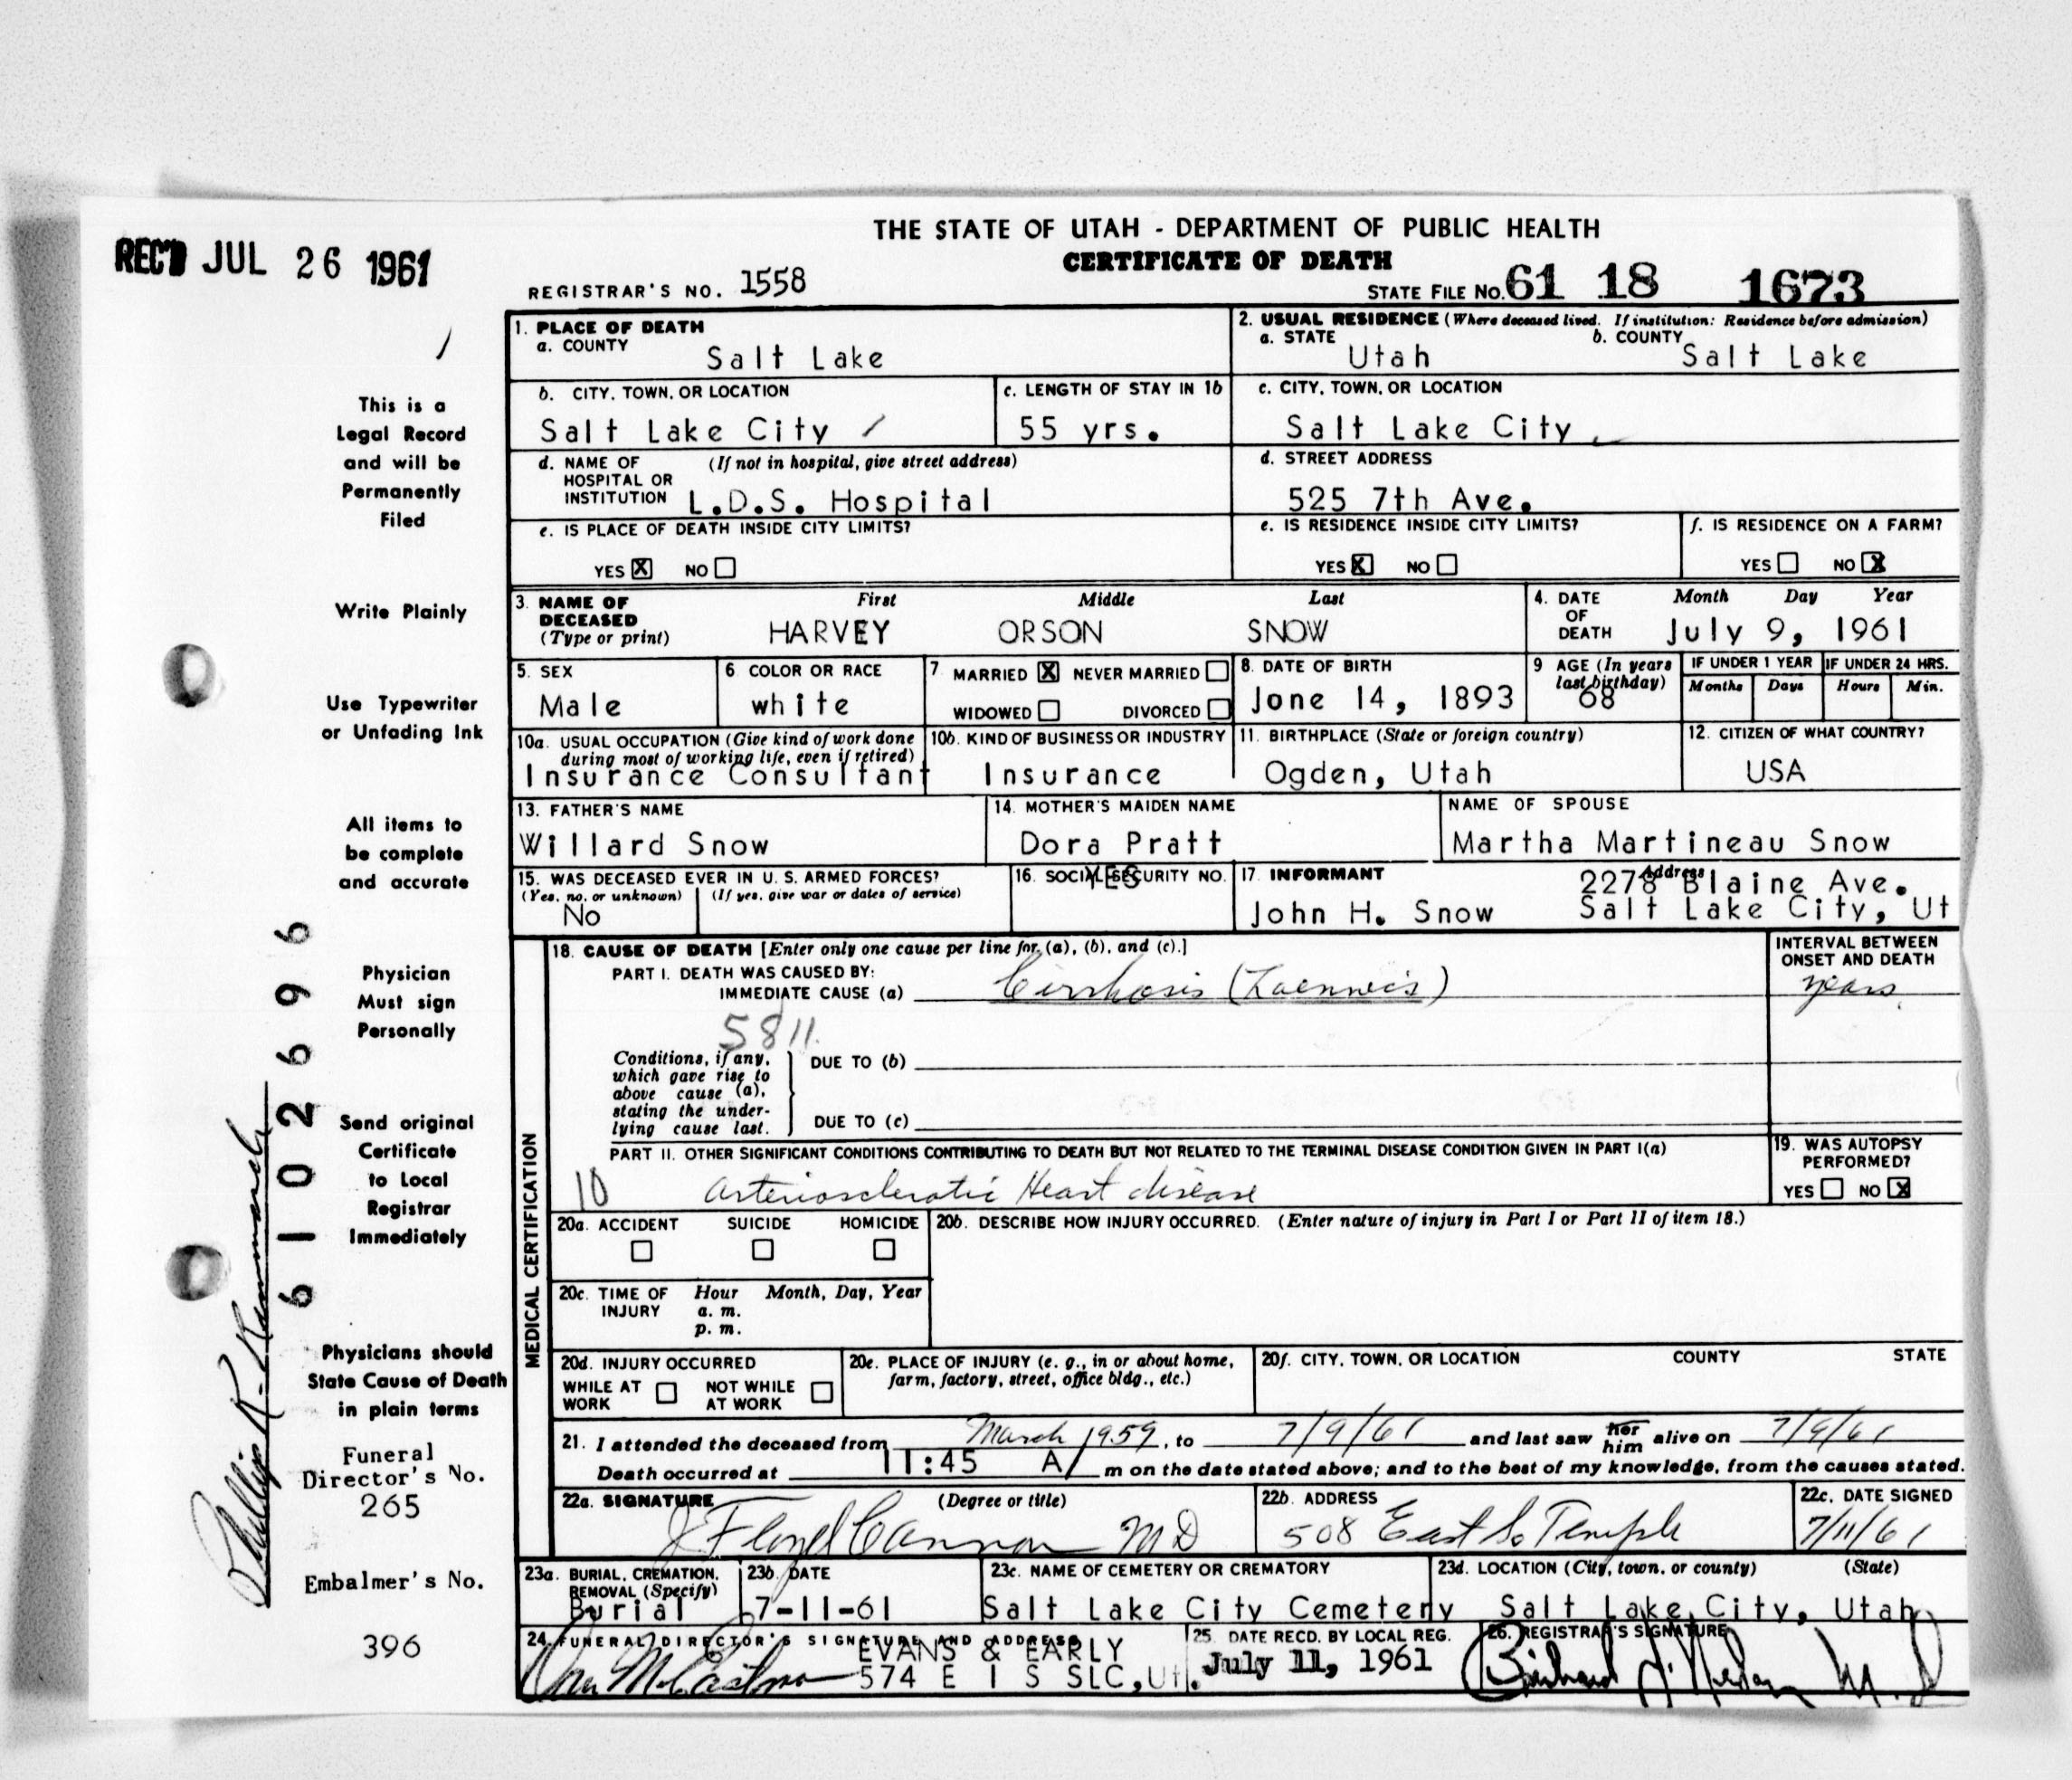 THE STATE OF UTAH - DEPARTMENT OF PUBLIC HEALTH
CERTIFICATE OF DEATH
REC'D JUL 26 1961
REGISTRAR'S NO. 1558
STATE FILE NO. 61 18 1673
This is a
Legal Record
and will be
Permanently
Filed
Write Plainly
Use Typewriter
or Unfading Ink
All items to
be complete
and accurate
Physician
Must sign
Personally
Send original
Certificate
to Local
Registrar
Immediately
Physicians should
State Cause of Death
in plain terms
Funeral
Director's No.
265
Embalmer's No.
396
6102696
Phillip R.
1. PLACE OF DEATH
a. COUNTY
Salt Lake
2. USUAL RESIDENCE (Where deceased lived. If institution: Residence before admission)
a. STATE b. COUNTY
Utah Salt Lake
b. CITY, TOWN, OR LOCATION
Salt Lake City
c. LENGTH OF STAY IN 1b
55 yrs.
c. CITY, TOWN, OR LOCATION
Salt Lake City
d. NAME OF (If not in hospital, give street address)
HOSPITAL OR
INSTITUTION L.D.S. Hospital
d. STREET ADDRESS
525 7th Ave.
e. IS PLACE OF DEATH INSIDE CITY LIMITS?
YES X NO
e. IS RESIDENCE INSIDE CITY LIMITS?
YES X NO
f. IS RESIDENCE ON A FARM?
YES NO X
3. NAME OF First Middle Last
DECEASED
(Type or print) HARVEY ORSON SNOW
4. DATE Month Day Year
OF
DEATH July 9, 1961
5. SEX
Male
6 COLOR OR RACE
white
7 MARRIED X NEVER MARRIED
WIDOWED DIVORCED
8. DATE OF BIRTH
June 14, 1893
9 AGE (In years
last birthday)
68
IF UNDER 1 YEAR
Months Days
IF UNDER 24 HRS.
Hours Min.
10a. USUAL OCCUPATION (Give kind of work done
during most of working life, even if retired)
Insurance Consultant
10b. KIND OF BUSINESS OR INDUSTRY
Insurance
11. BIRTHPLACE (State or foreign country)
Ogden, Utah
12. CITIZEN OF WHAT COUNTRY?
USA
13. FATHER'S NAME
Willard Snow
14. MOTHER'S MAIDEN NAME
Dora Pratt
NAME OF SPOUSE
Martha Martineau Snow
15. WAS DECEASED EVER IN U. S. ARMED FORCES?
(Yes, no, or unknown) (If yes, give war or dates of service)
No
16. SOCIAL SECURITY NO.
YES
17 INFORMANT Address
2278 Blaine Ave.
John H. Snow Salt Lake City, Ut
MEDICAL CERTIFICATION
18. CAUSE OF DEATH [Enter only one cause per line for (a), (b), and (c).]
PART I. DEATH WAS CAUSED BY:
IMMEDIATE CAUSE (a) Cirrhosis (Laennec's)
INTERVAL BETWEEN
ONSET AND DEATH
years
5811
Conditions, if any,
which gave rise to
above cause (a),
stating the under-
lying cause last.
DUE TO (b)
DUE TO (c)
PART II. OTHER SIGNIFICANT CONDITIONS CONTRIBUTING TO DEATH BUT NOT RELATED TO THE TERMINAL DISEASE CONDITION GIVEN IN PART I(a)
10 Arteriosclerotic Heart disease
19. WAS AUTOPSY
PERFORMED?
YES NO X
20a. ACCIDENT SUICIDE HOMICIDE
20b. DESCRIBE HOW INJURY OCCURRED. (Enter nature of injury in Part I or Part II of item 18.)
20c. TIME OF Hour Month, Day, Year
INJURY a. m.
p. m.
20d. INJURY OCCURRED
WHILE AT NOT WHILE
WORK AT WORK
20e. PLACE OF INJURY (e. g., in or about home,
farm, factory, street, office bldg., etc.)
20f. CITY, TOWN, OR LOCATION COUNTY STATE
21. I attended the deceased from March 1959, to 7/9/61 and last saw her him alive on 7/9/61
Death occurred at 11:45 A m on the date stated above; and to the best of my knowledge, from the causes stated.
22a. SIGNATURE (Degree or title)
J Floyd Cannon MD
22b. ADDRESS
508 East So Temple
22c. DATE SIGNED
7/11/61
23a. BURIAL, CREMATION,
REMOVAL (Specify)
Burial
23b. DATE
7-11-61
23c. NAME OF CEMETERY OR CREMATORY
Salt Lake City Cemetery
23d. LOCATION (City, town, or county) (State)
Salt Lake City, Utah
24. FUNERAL DIRECTOR'S SIGNATURE AND ADDRESS
EVANS & EARLY
574 E I S SLC, Ut.
25. DATE RECD. BY LOCAL REG.
July 11, 1961
26. REGISTRAR'S SIGNATURE